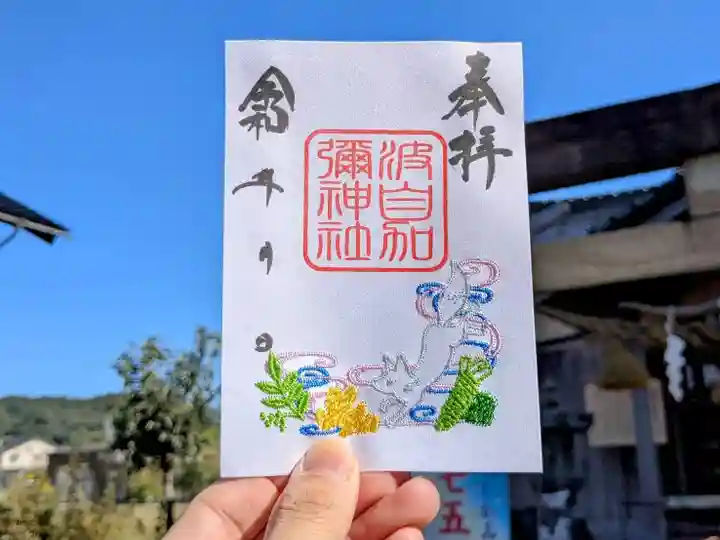 奉拝
波自加
彌神社
令和 年 月 日
七五